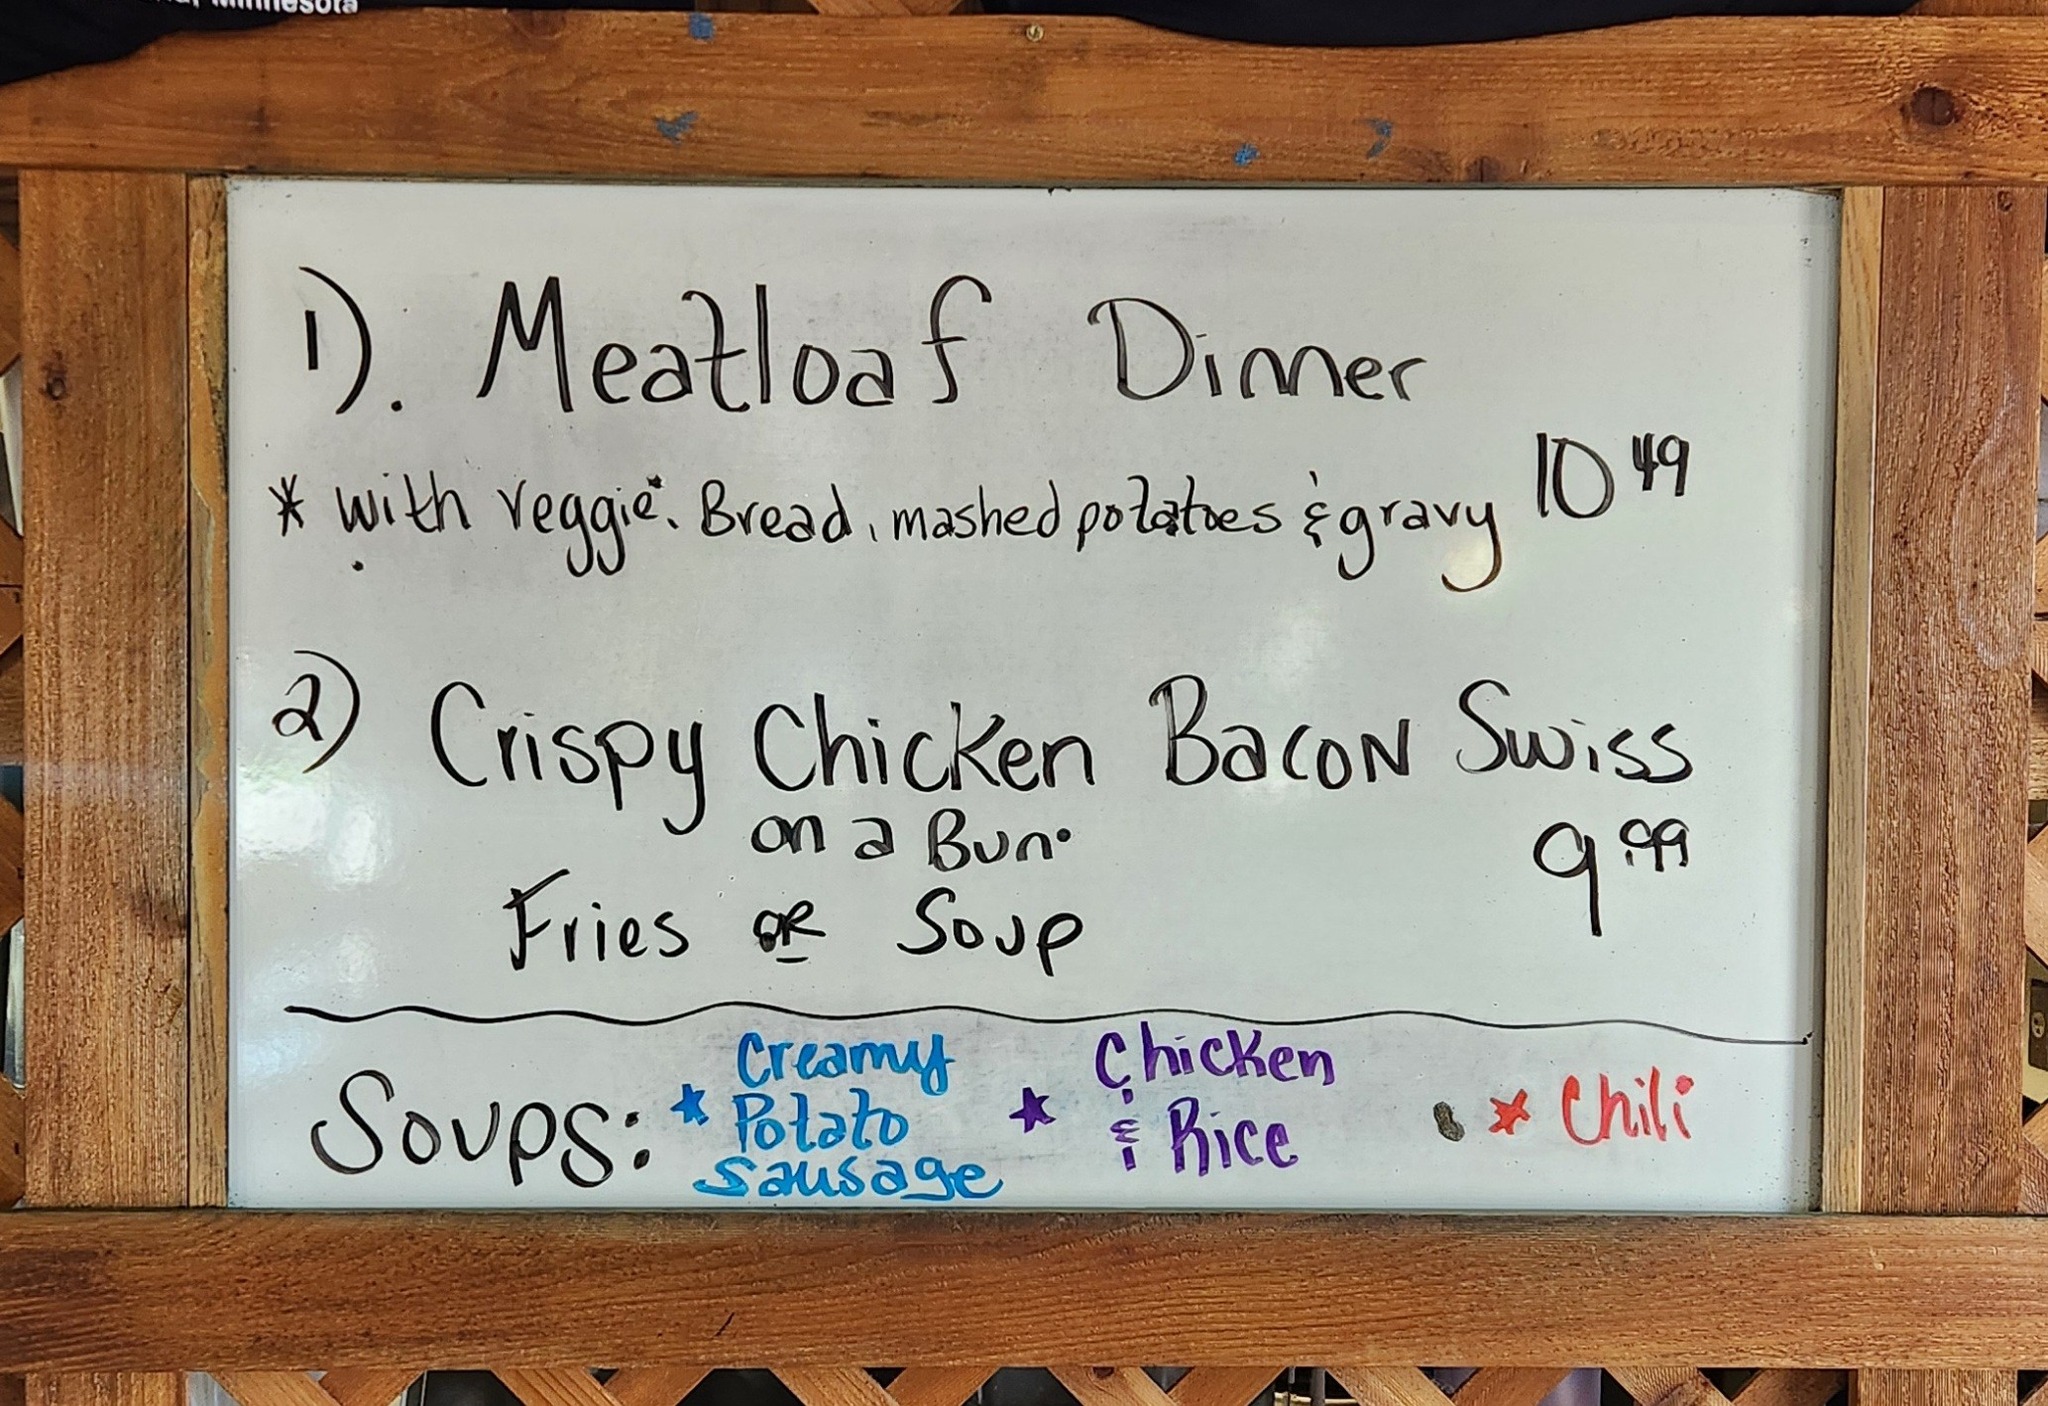 Minnesota
1). Meatloaf Dinner
* with veggie. Bread, mashed potatoes & gravy 10 49
2) Crispy Chicken Bacon Swiss
on a Bun. 9 99
Fries OR Soup
Soups: * Creamy Potato Sausage * Chicken & Rice * Chili